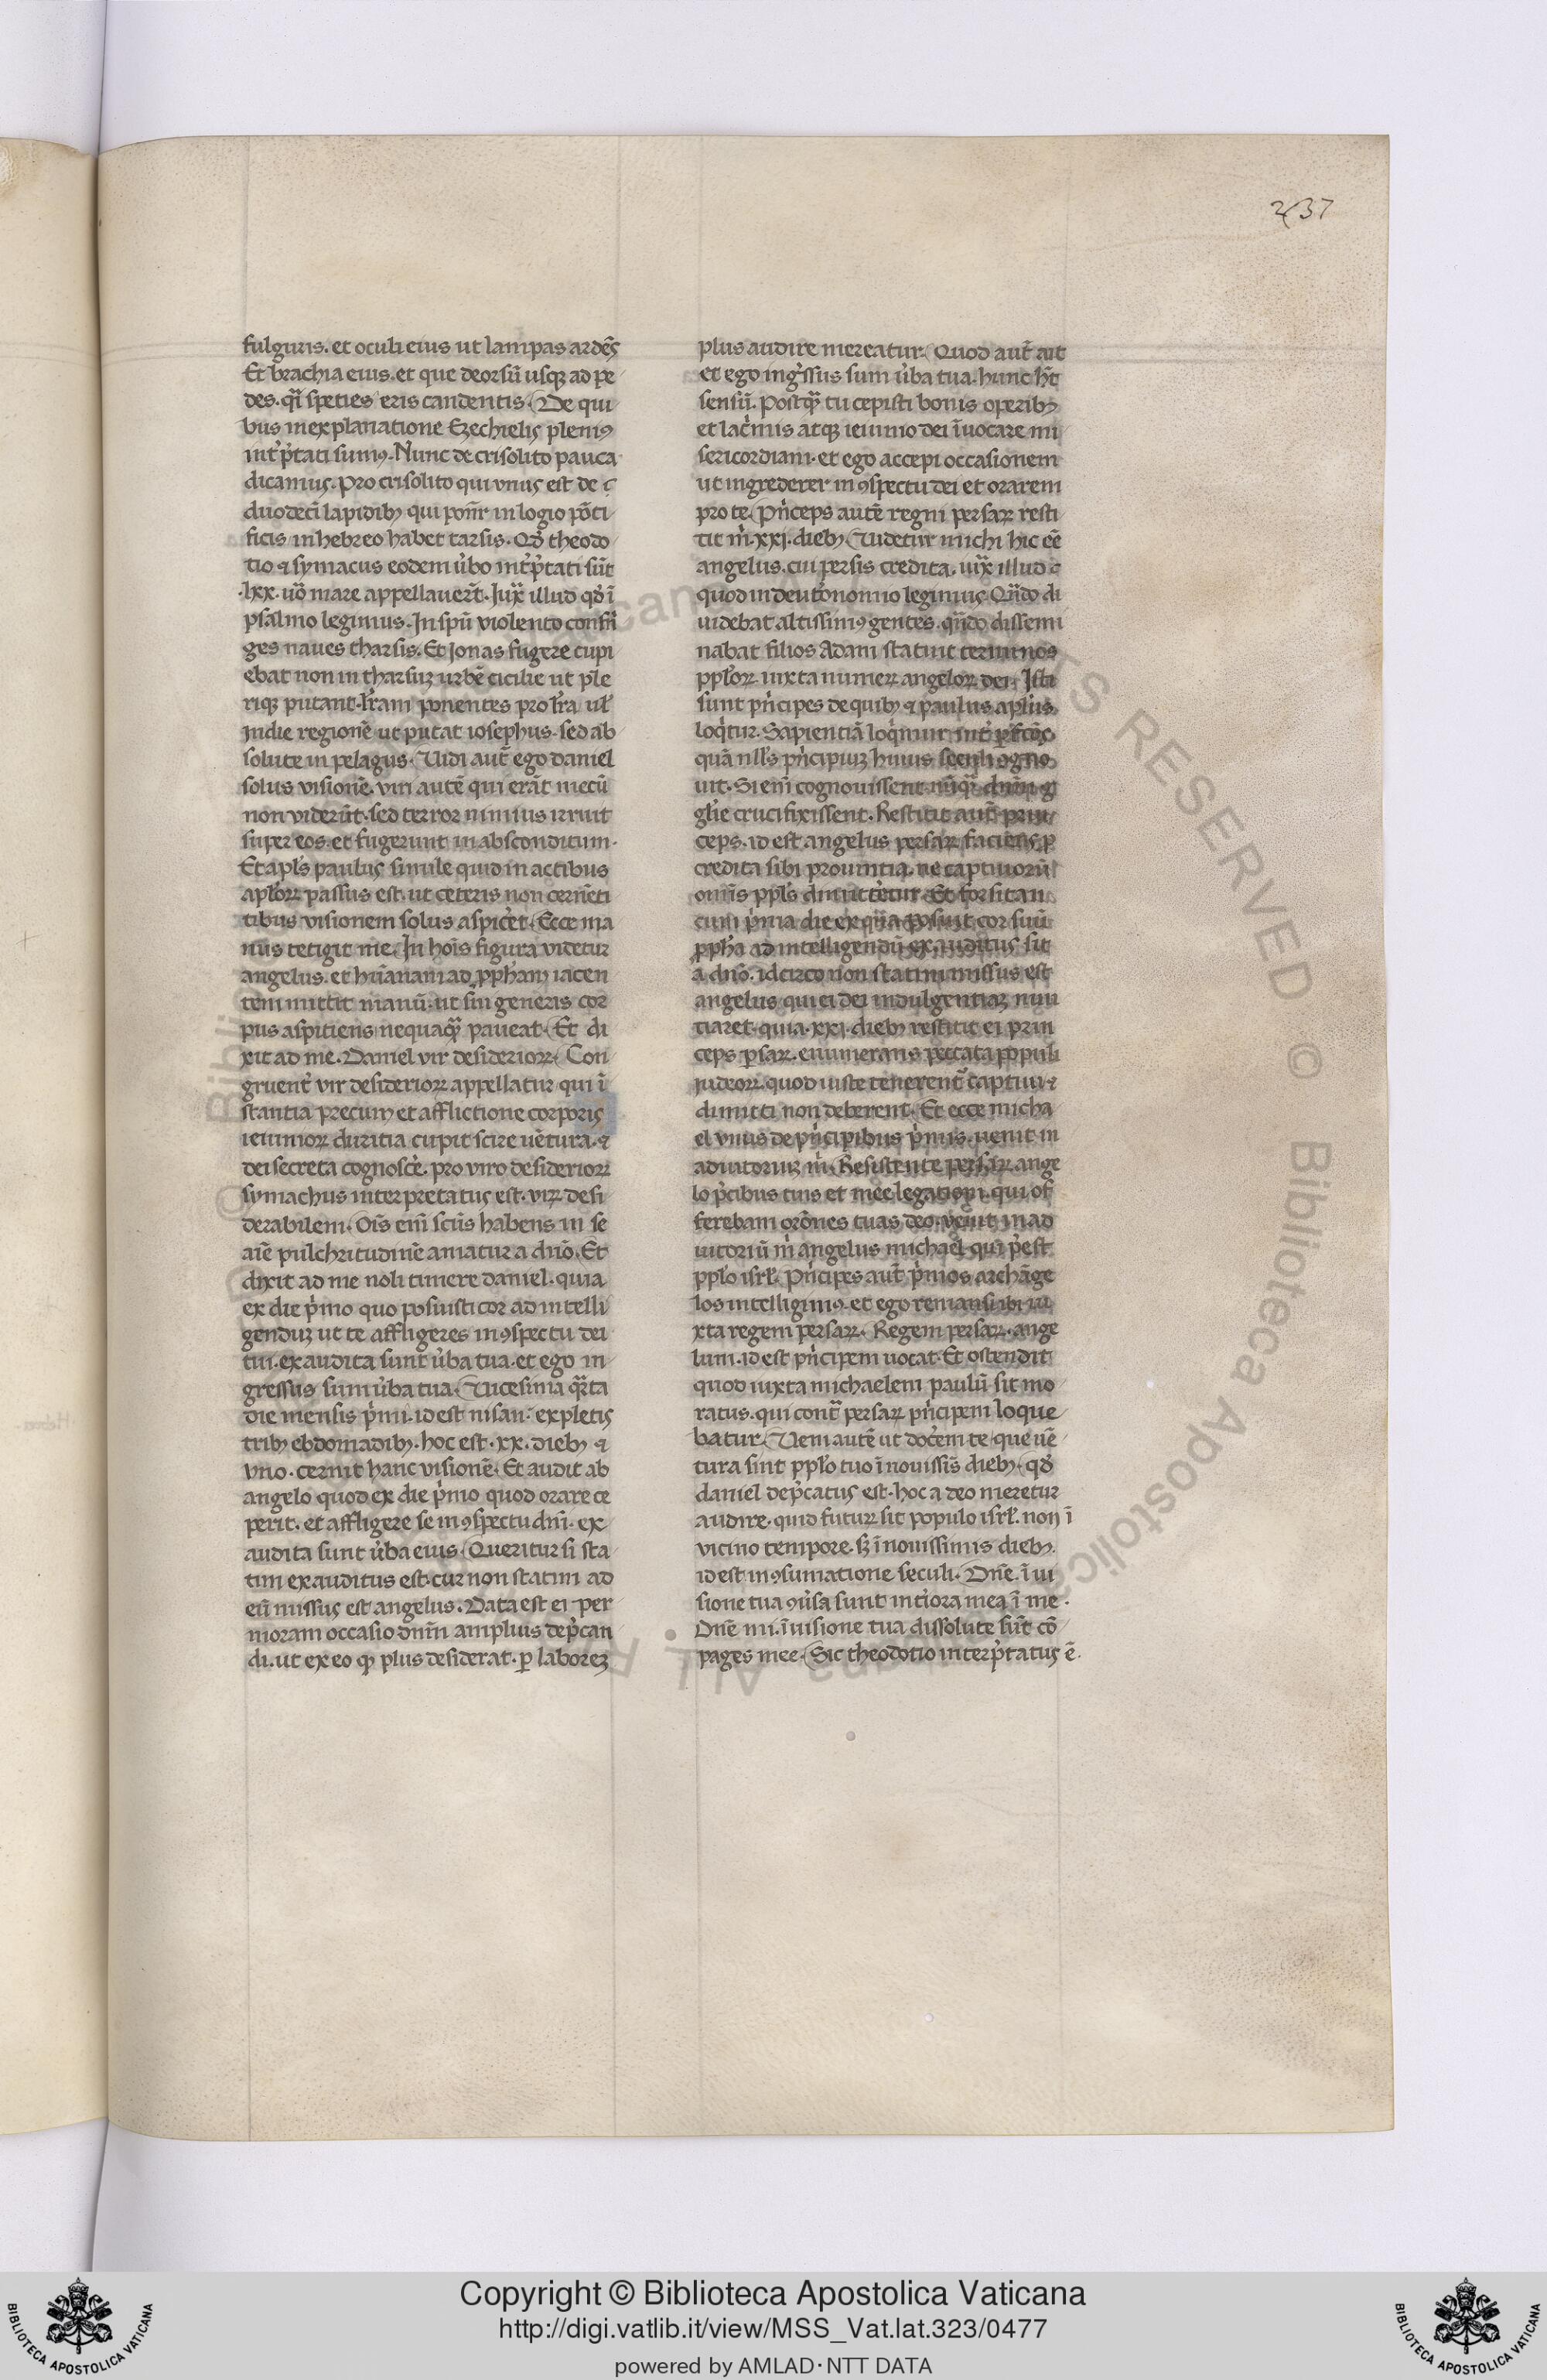 237
fulguris. et oculi eius ut lampas ardēs
Et brachia eius. et que deorsū usqꝫ ad pe
des. qͣi speties eris candentis. De qui
bus in explanatione Ezechielis pleniꝰ
int̾p̄tati sumꝰ. Nunc de crisolito pauca
dicamus. Pro crisolito qui vnus est de
duodecī lapidibꝫ qui ponūr in logio pōti
ficis in hebreo habet tarsis. Qd̾ theodo
tio ⁊ symacus eodem u̾bo int̾p̄tati sūt
.lxx. uº mare appellauer̄t. Juxͣ illud qd̾ ī
psalmo legimus. In spū violento confrī
ges naues tharsis. Et Jonas fugere cupi
ebat non in tharsuꝫ urbē cicilie ut ple
riqꝫ putant. lr̄am ponentes pro lr̄a ul̄
Jndie regionē ut putat iosephus. sed ab
solute in pelagus. Vidi aut̄ ego daniel
solus visionē. viri autē qui erāt mecū
non viderūt. sed terror nimius irruit
super eos. et fugerunt in absconditum.
Et apl̄s paulus simile quid in actibus
apl̄oꝝ passus est. ut ceteris non cernēti
tibus visionem solus aspicēt. Ecce ma
nus tetigit me. In hoīs figura videtur
angelus. et hūanam ad ꝓph̄am iacen
tem mittit manū. ut sui generis cor
pus aspitiens nequaqͣꝫ paueat. Et di
xit ad me. Daniel vir desiderioꝝ. Con
gruent̾ vir desiderioꝝ appellatur qui ī
stantia precum et afflictione corporis
ieiunioꝝ duritia cupit scire uētura. ⁊
dei secreta cognosc̾e. pro viro desiderioꝝ
symachus interpretatus est. viꝝ desi
derabilem. Oīs enī scūs habens in se
aīe pulchritudinē amatur a dnō. Et
dixit ad me noli timere daniel. quia
ex die p̾mo quo posuisti cor ad intelli
genduꝫ ut te affligeres in ꝯspectu dei
tui. exaudita sunt u̾ba tua. et ego in
gressus sum u̾ba tua. Vicesima qͣrta
die mensis p̾mi. id est nisan. expletis
tribꝫ ebdomadibꝫ. hoc est .xx. diebꝫ ⁊
vno. cernit hanc visionē. Et audit ab
angelo quod ex die p̾mo quod orare ce
perit. et affligere se in ꝯspectu dnī. ex
audita sunt u̾ba eius. Queritur si sta
tim exauditus est. cur non statim ad
eū missus est angelus. Data est ei per
moram occasio dnm̄ amplius dep̄can
di. ut ex eo qͦ plus desiderat. ꝑ laboreꝫ
plus audire mereatur. Quod aut̄ ait
et ego ing̾ssus sum u̾ba tua. hunc hꝫt
sensū. Postqͣꝫ tu cepisti bonis operibꝫ
et lac̾mis atqꝫ ieiunio dei īuocare mi
sericordiam. et ego accepi occasionem
ut ingrederer in ꝯspectu dei et orarem
pro te. Pn̾ceps autē regni persaꝝ resti
tit m̾ .xxj. diebꝫ. Videtur michi hic eē
angelus. cui persis credita. iuxͣ illud
quod in deut̾onomio legimus. Qn̄do di
uidebat altissimꝰ gentes. qn̄do dissemi
nabat filios Adam statuit terminos
ppl̄oꝝ iuxta numeꝝ angeloꝝ dei. Isti
sunt pn̾cipes de quibꝫ ⁊ paulus apl̄us
loq̾tur. Sapientiā loq̾mur int̾ ꝑfctōs
quā nll̄s pn̾cipuꝫ huius seculi ꝯgno
uit. Si enī cognouissent. nūqͣꝫ dnm̄
gl̄ie crucifixissent. Restitit aut̄ prin
ceps. id est angelus persaꝝ faciens ꝑ
credita sibi prouintia. ne captiuorū
omīs ppl̄s dimittēt̾ur. Et forsitan
cum p̾ma die ex qͣ posuit cor suū
ꝓph̄a ad intelligendū. exauditus sit
a dnō. idcirco non statim missus est
angelus qui ei dei indulgentiaꝫ nun
tiaret. quia .xxj. diebꝫ restitit ei prin
ceps ꝑsaꝝ. enumerans peccata populi
iudeoꝝ. quod iuste tenerent̾ captiui. ⁊
dimitti non deberent. Et ecce micha
el vnus de pn̾cipibus p̾mis. uenit in
adiutoriuꝫ m̾. Resistente persaꝝ ange
lo p̾cibus tuis et mee legationi. qui of
ferebam orōnes tuas deo. venit in ad
iutoriū m̾ angelus michael. qui p̄est
ppl̄o isrl̄. Pn̾cipes aut̄ p̾mos archāge
los intelligimꝰ. et ego remansi ibi iu
xta regem persaꝝ. Regem persaꝝ. ange
lum. id est pn̾cipem uocat. Et ostendit
quod iuxta michaelem paulū sit mo
ratus. qui contͣ persaꝝ pn̾cipem loque
batur. Veni autē ut docēm te. que uē
tura sint ppl̄o tuo ī nouissīs diebꝫ. qd̾
daniel dep̄catus est. hoc a deo meretur
audire. quid futuꝝ sit populo isrl̄. non ī
vicino tempore. sꝫ ī nouissimis diebꝫ.
id est in ꝯsumatione seculi. Dnē. ī ui
sione tua ꝯu̾sa sunt int̾iora mea ī me.
Dnē mi. ī uisione tua dissolute sūt cō
pages mee. Sic theodotio interp̄tatus ē.
Copyright © Biblioteca Apostolica Vaticana
http://digi.vatlib.it/view/MSS_Vat.lat.323/0477
powered by AMLAD·NTT DATA
BIBLIOTECA APOSTOLICA VATICANA
BIBLIOTECA APOSTOLICA VATICANA